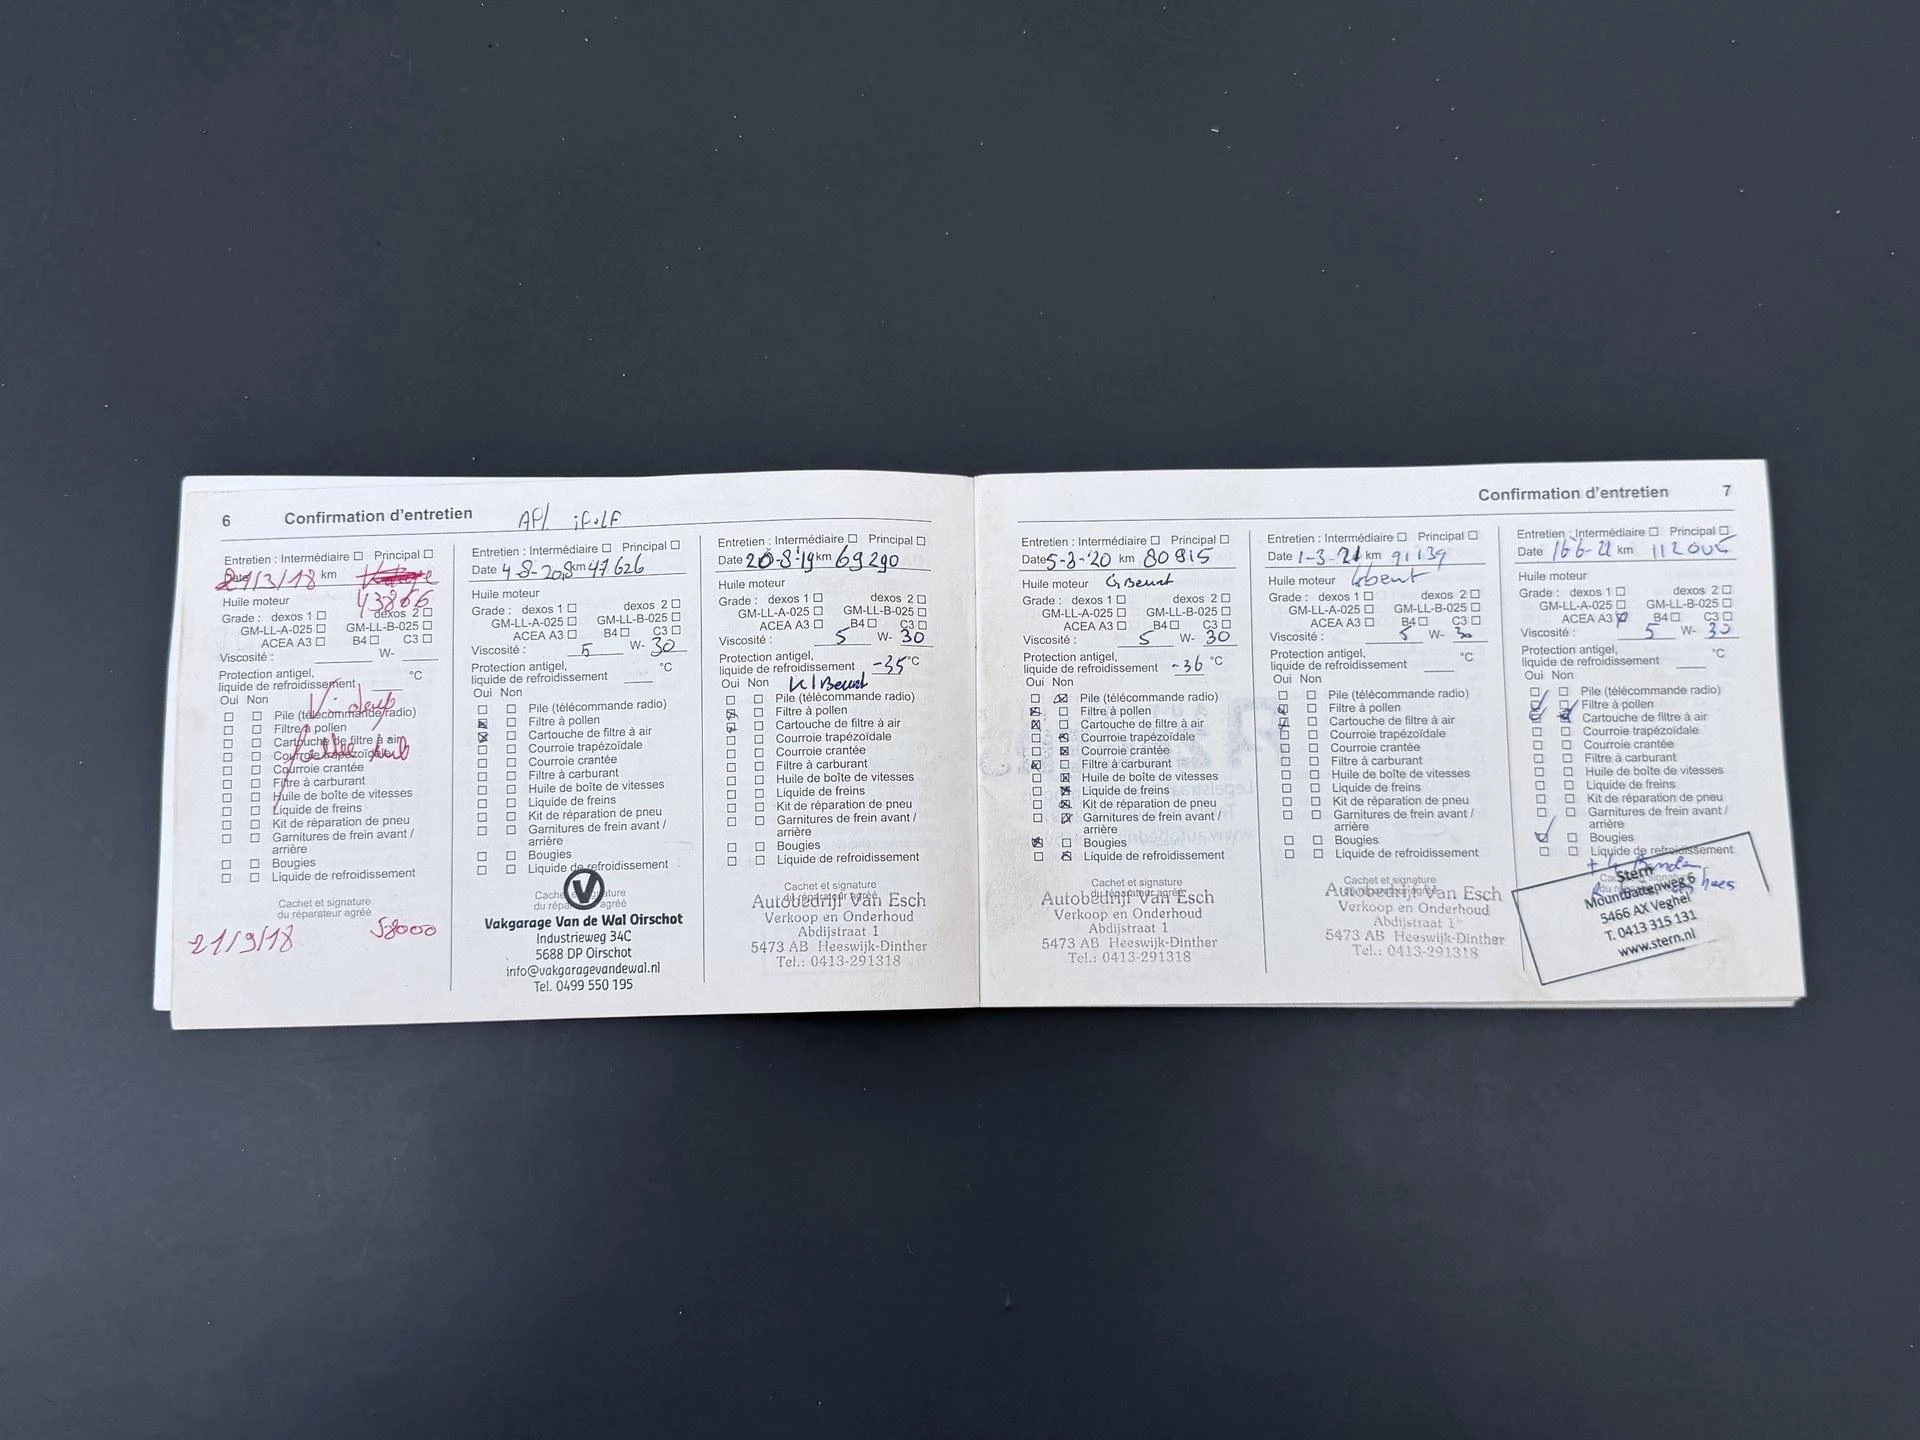 6 Confirmation d'entretien
Entretien : Intermédiaire ☐ Principal ☐
21/3/18 km
43866
Huile moteur
Grade : dexos 1 ☐ dexos 2 ☐
GM-LL-A-025 ☐ GM-LL-B-025 ☐
ACEA A3 ☐ B4 ☐ C3 ☐
Viscosité : W-
Protection antigel,
liquide de refroidissement °C
Oui Non
Pile (télécommande radio)
Filtre à pollen
Cartouche de filtre à air
Courroie trapézoïdale
Courroie crantée
Filtre à carburant
Huile de boîte de vitesses
Liquide de freins
Kit de réparation de pneu
Garnitures de frein avant /
arrière
Bougies
Liquide de refroidissement
Cachet et signature
du réparateur agréé
21/9/18 58000
Entretien : Intermédiaire ☐ Principal ☐
Date 4-8-20,8 km 47626
Huile moteur
Grade : dexos 1 ☐ dexos 2 ☐
GM-LL-A-025 ☐ GM-LL-B-025 ☐
ACEA A3 ☐ B4 ☐ C3 ☐
Viscosité : 5 W- 30
Protection antigel,
liquide de refroidissement °C
Oui Non
Pile (télécommande radio)
Filtre à pollen
Cartouche de filtre à air
Courroie trapézoïdale
Courroie crantée
Filtre à carburant
Huile de boîte de vitesses
Liquide de freins
Kit de réparation de pneu
Garnitures de frein avant /
arrière
Bougies
Liquide de refroidissement
Cachet et signature
du réparateur agréé
Vakgarage Van de Wal Oirschot
Industrieweg 34C
5688 DP Oirschot
info@vakgaragevandewal.nl
Tel. 0499 550 195
Entretien : Intermédiaire ☐ Principal ☐
Date 20-8-'19 km 69290
Huile moteur
Grade : dexos 1 ☐ dexos 2 ☐
GM-LL-A-025 ☐ GM-LL-B-025 ☐
ACEA A3 ☐ B4 ☐ C3 ☐
Viscosité : 5 W- 30
Protection antigel,
liquide de refroidissement -35 °C
Oui Non
Pile (télécommande radio)
Filtre à pollen
Cartouche de filtre à air
Courroie trapézoïdale
Courroie crantée
Filtre à carburant
Huile de boîte de vitesses
Liquide de freins
Kit de réparation de pneu
Garnitures de frein avant /
arrière
Bougies
Liquide de refroidissement
Cachet et signature
du réparateur agréé
Autobedrijf Van Esch
Verkoop en Onderhoud
Abdijstraat 1
5473 AB Heeswijk-Dinther
Tel.: 0413-291318
Confirmation d'entretien 7
Entretien : Intermédiaire ☐ Principal ☐
Date 5-3-'20 km 80815
Huile moteur G Beurt
Grade : dexos 1 ☐ dexos 2 ☐
GM-LL-A-025 ☐ GM-LL-B-025 ☐
ACEA A3 ☐ B4 ☐ C3 ☐
Viscosité : 5 W- 30
Protection antigel,
liquide de refroidissement -36 °C
Oui Non
Pile (télécommande radio)
Filtre à pollen
Cartouche de filtre à air
Courroie trapézoïdale
Courroie crantée
Filtre à carburant
Huile de boîte de vitesses
Liquide de freins
Kit de réparation de pneu
Garnitures de frein avant /
arrière
Bougies
Liquide de refroidissement
Cachet et signature
du réparateur agréé
Autobedrijf Van Esch
Verkoop en Onderhoud
Abdijstraat 1
5473 AB Heeswijk-Dinther
Tel.: 0413-291318
Entretien : Intermédiaire ☐ Principal ☐
Date 1-3-21 km 91139
Huile moteur
Grade : dexos 1 ☐ dexos 2 ☐
GM-LL-A-025 ☐ GM-LL-B-025 ☐
ACEA A3 ☐ B4 ☐ C3 ☐
Viscosité : 5 W- 30
Protection antigel,
liquide de refroidissement °C
Oui Non
Pile (télécommande radio)
Filtre à pollen
Cartouche de filtre à air
Courroie trapézoïdale
Courroie crantée
Filtre à carburant
Huile de boîte de vitesses
Liquide de freins
Kit de réparation de pneu
Garnitures de frein avant /
arrière
Bougies
Liquide de refroidissement
Cachet et signature
du réparateur agréé
Autobedrijf Van Esch
Verkoop en Onderhoud
Abdijstraat 1
5473 AB Heeswijk-Dinther
Tel.: 0413-291318
Entretien : Intermédiaire ☐ Principal ☐
Date km
Huile moteur
Grade : dexos 1 ☐ dexos 2 ☐
GM-LL-A-025 ☐ GM-LL-B-025 ☐
ACEA A3 B4 ☐ C3 ☐
Viscosité : 5 W- 30
Protection antigel,
liquide de refroidissement °C
Oui Non
Pile (télécommande radio)
Filtre à pollen
Cartouche de filtre à air
Courroie trapézoïdale
Courroie crantée
Filtre à carburant
Huile de boîte de vitesses
Liquide de freins
Kit de réparation de pneu
Garnitures de frein avant /
arrière
Bougies
Liquide de refroidissement
Stern
Mountbattenweg 6
5466 AX Veghel
T. 0413 315 131
www.stern.nl